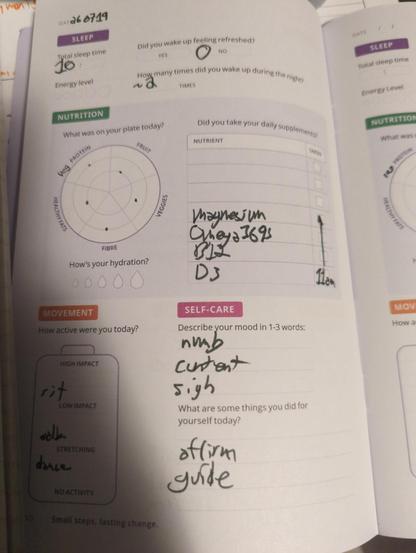 DATE 260719
SLEEP
Total sleep time
10
Did you wake up feeling refreshed?
YES NO
Energy level
How many times did you wake up during the night?
~2 TIMES
NUTRITION
What was on your plate today?
PROTEIN
FRUIT
VEGGIES
FIBRE
HEALTHY FATS
How's your hydration?
Did you take your daily supplements?
NUTRIENT TAKEN
magnesium
Omega 369s
B12
D3
11am
MOVEMENT
How active were you today?
HIGH IMPACT
LOW IMPACT
walk
STRETCHING
dance
NO ACTIVITY
SELF-CARE
Describe your mood in 1-3 words:
numb
current
sigh
What are some things you did for
yourself today?
affirm
guide
Small steps, lasting change.
DATE / /
SLEEP
Total sleep time
:
Energy Level
NUTRITION
What was
PROTEIN
HEALTHY FATS
MOV
How a